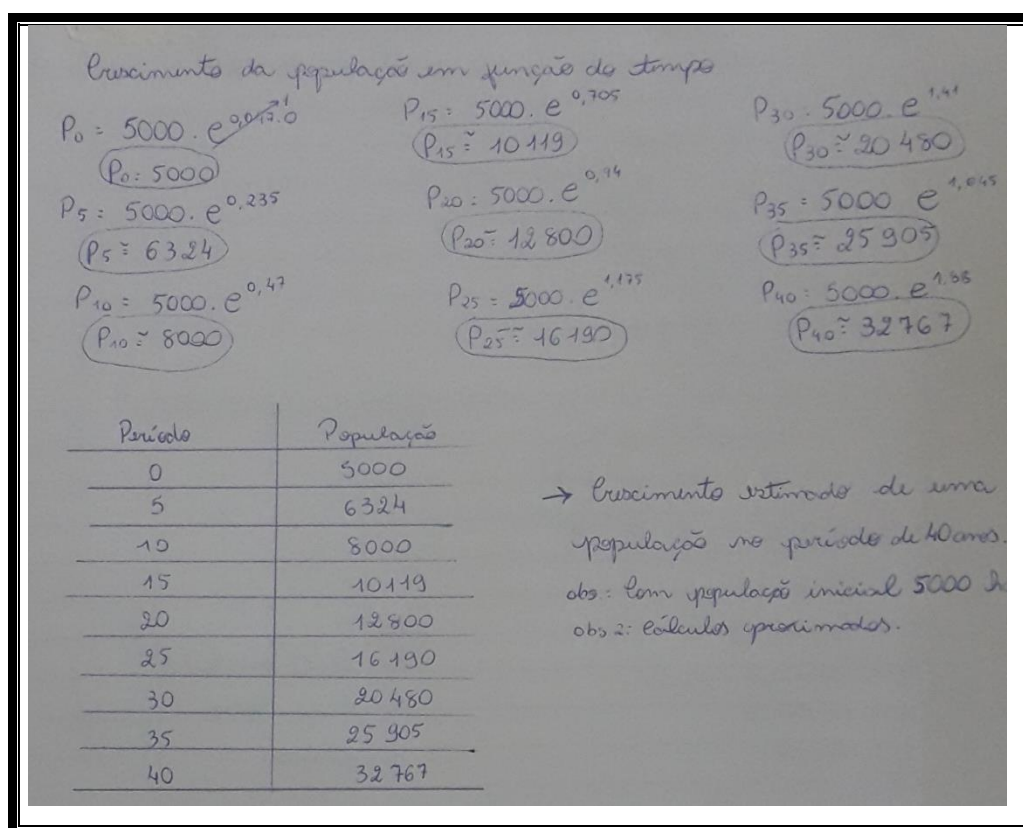 Crescimento da população em função do tempo
P₀ = 5000 . e^0,047.0 1
P₀ = 5000
P₅ = 5000. e^0,235
P₅ ≅ 6324
P₁₀ = 5000. e^0,47
P₁₀ ≅ 8000
P₁₅ = 5000. e^0,705
P₁₅ ≅ 10119
P₂₀ = 5000. e^0,94
P₂₀ ≅ 12800
P₂₅ = 5000. e^1,175
P₂₅ ≅ 16190
P₃₀ = 5000. e^1,41
P₃₀ ≅ 20480
P₃₅ = 5000 e^1,645
P₃₅ ≅ 25905
P₄₀ = 5000. e^1,88
P₄₀ ≅ 32767
Período População
0 5000
5 6324
10 8000
15 10119
20 12800
25 16190
30 20480
35 25905
40 32767
→ Crescimento estimado de uma
população no período de 40 anos.
obs: Com população inicial 5000 h
obs 2: Cálculos aproximados.